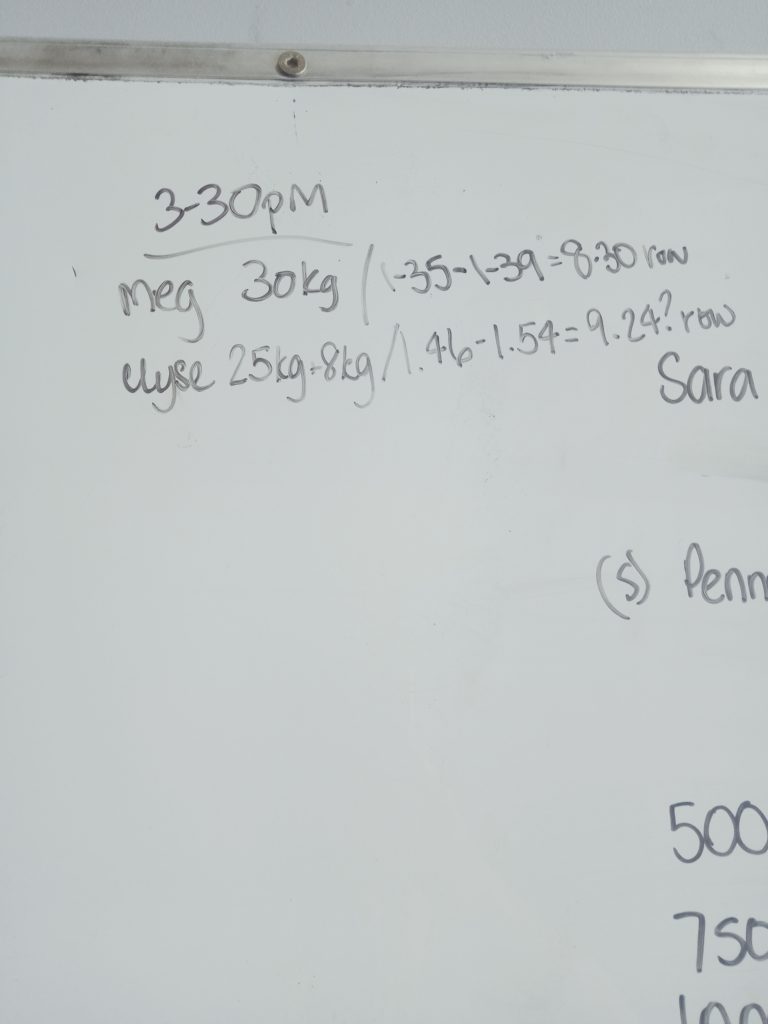 3-30pM
meg 30kg / 1-35-1-39=8.30 row
elyse 25kg-8kg/1.46-1.54=9.24? row
Sara
(S) Penn
500
750
100